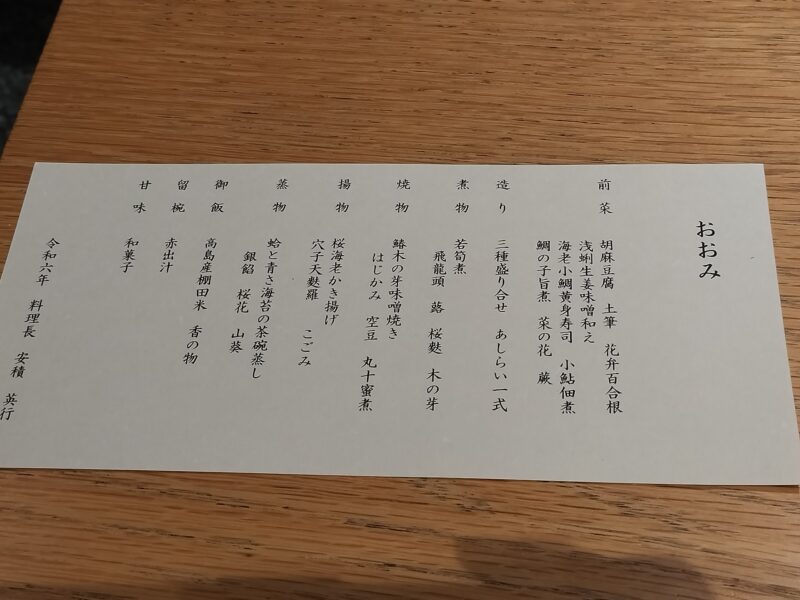 おおみ
前菜 胡麻豆腐 土筆 花弁百合根
浅蜊生姜味噌和え
海老小鯛黄身寿司 小鮎佃煮
鯛の子旨煮 菜の花 蕨
造り 三種盛り合せ あしらい一式
煮物 若筍煮
飛龍頭 蕗 桜麩 木の芽
焼物 鰆木の芽味噌焼き
はじかみ 空豆 丸十蜜煮
揚物 桜海老かき揚げ
穴子天麩羅 こごみ
蒸物 蛤と青さ海苔の茶碗蒸し
銀餡 桜花 山葵
御飯 高島産棚田米 香の物
留椀 赤出汁
甘味 和菓子
令和六年 料理長 安積 英行